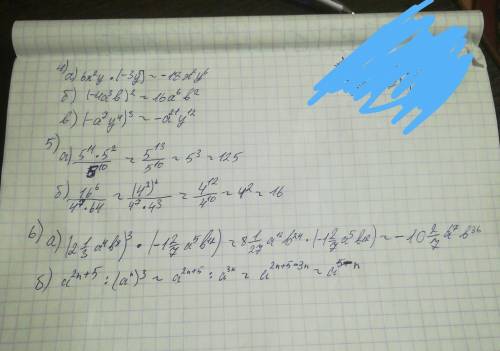 4) а) 6x²y · (-3y⁵) = -18x²y⁶
б) (-4a³b)² = 16a⁶b²
в) (-a⁷y⁴)³ = -a²¹y¹²
5) а) 5¹¹ · 5² / 5¹⁰ = 5¹³ / 5¹⁰ = 5³ = 125
б) 16⁶ / 4⁷ · 64 = (4²)⁶ / 4⁷ · 4³ = 4¹² / 4¹⁰ = 4² = 16
6) а) (2 1/3 a⁴b⁸)³ · (-1 2/7 a⁵b¹²) = 8 1/27 a¹²b²⁴ · (-1 2/7 a⁵b¹²) = -10 2/7 a¹⁷b³⁶
б) a²ⁿ⁺⁵ : (aⁿ)³ = a²ⁿ⁺⁵ : a³ⁿ = a²ⁿ⁺⁵⁻³ⁿ = a⁵⁻ⁿ